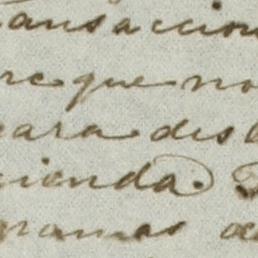 ansaccion
re que no
para des
cienda.
ramos de